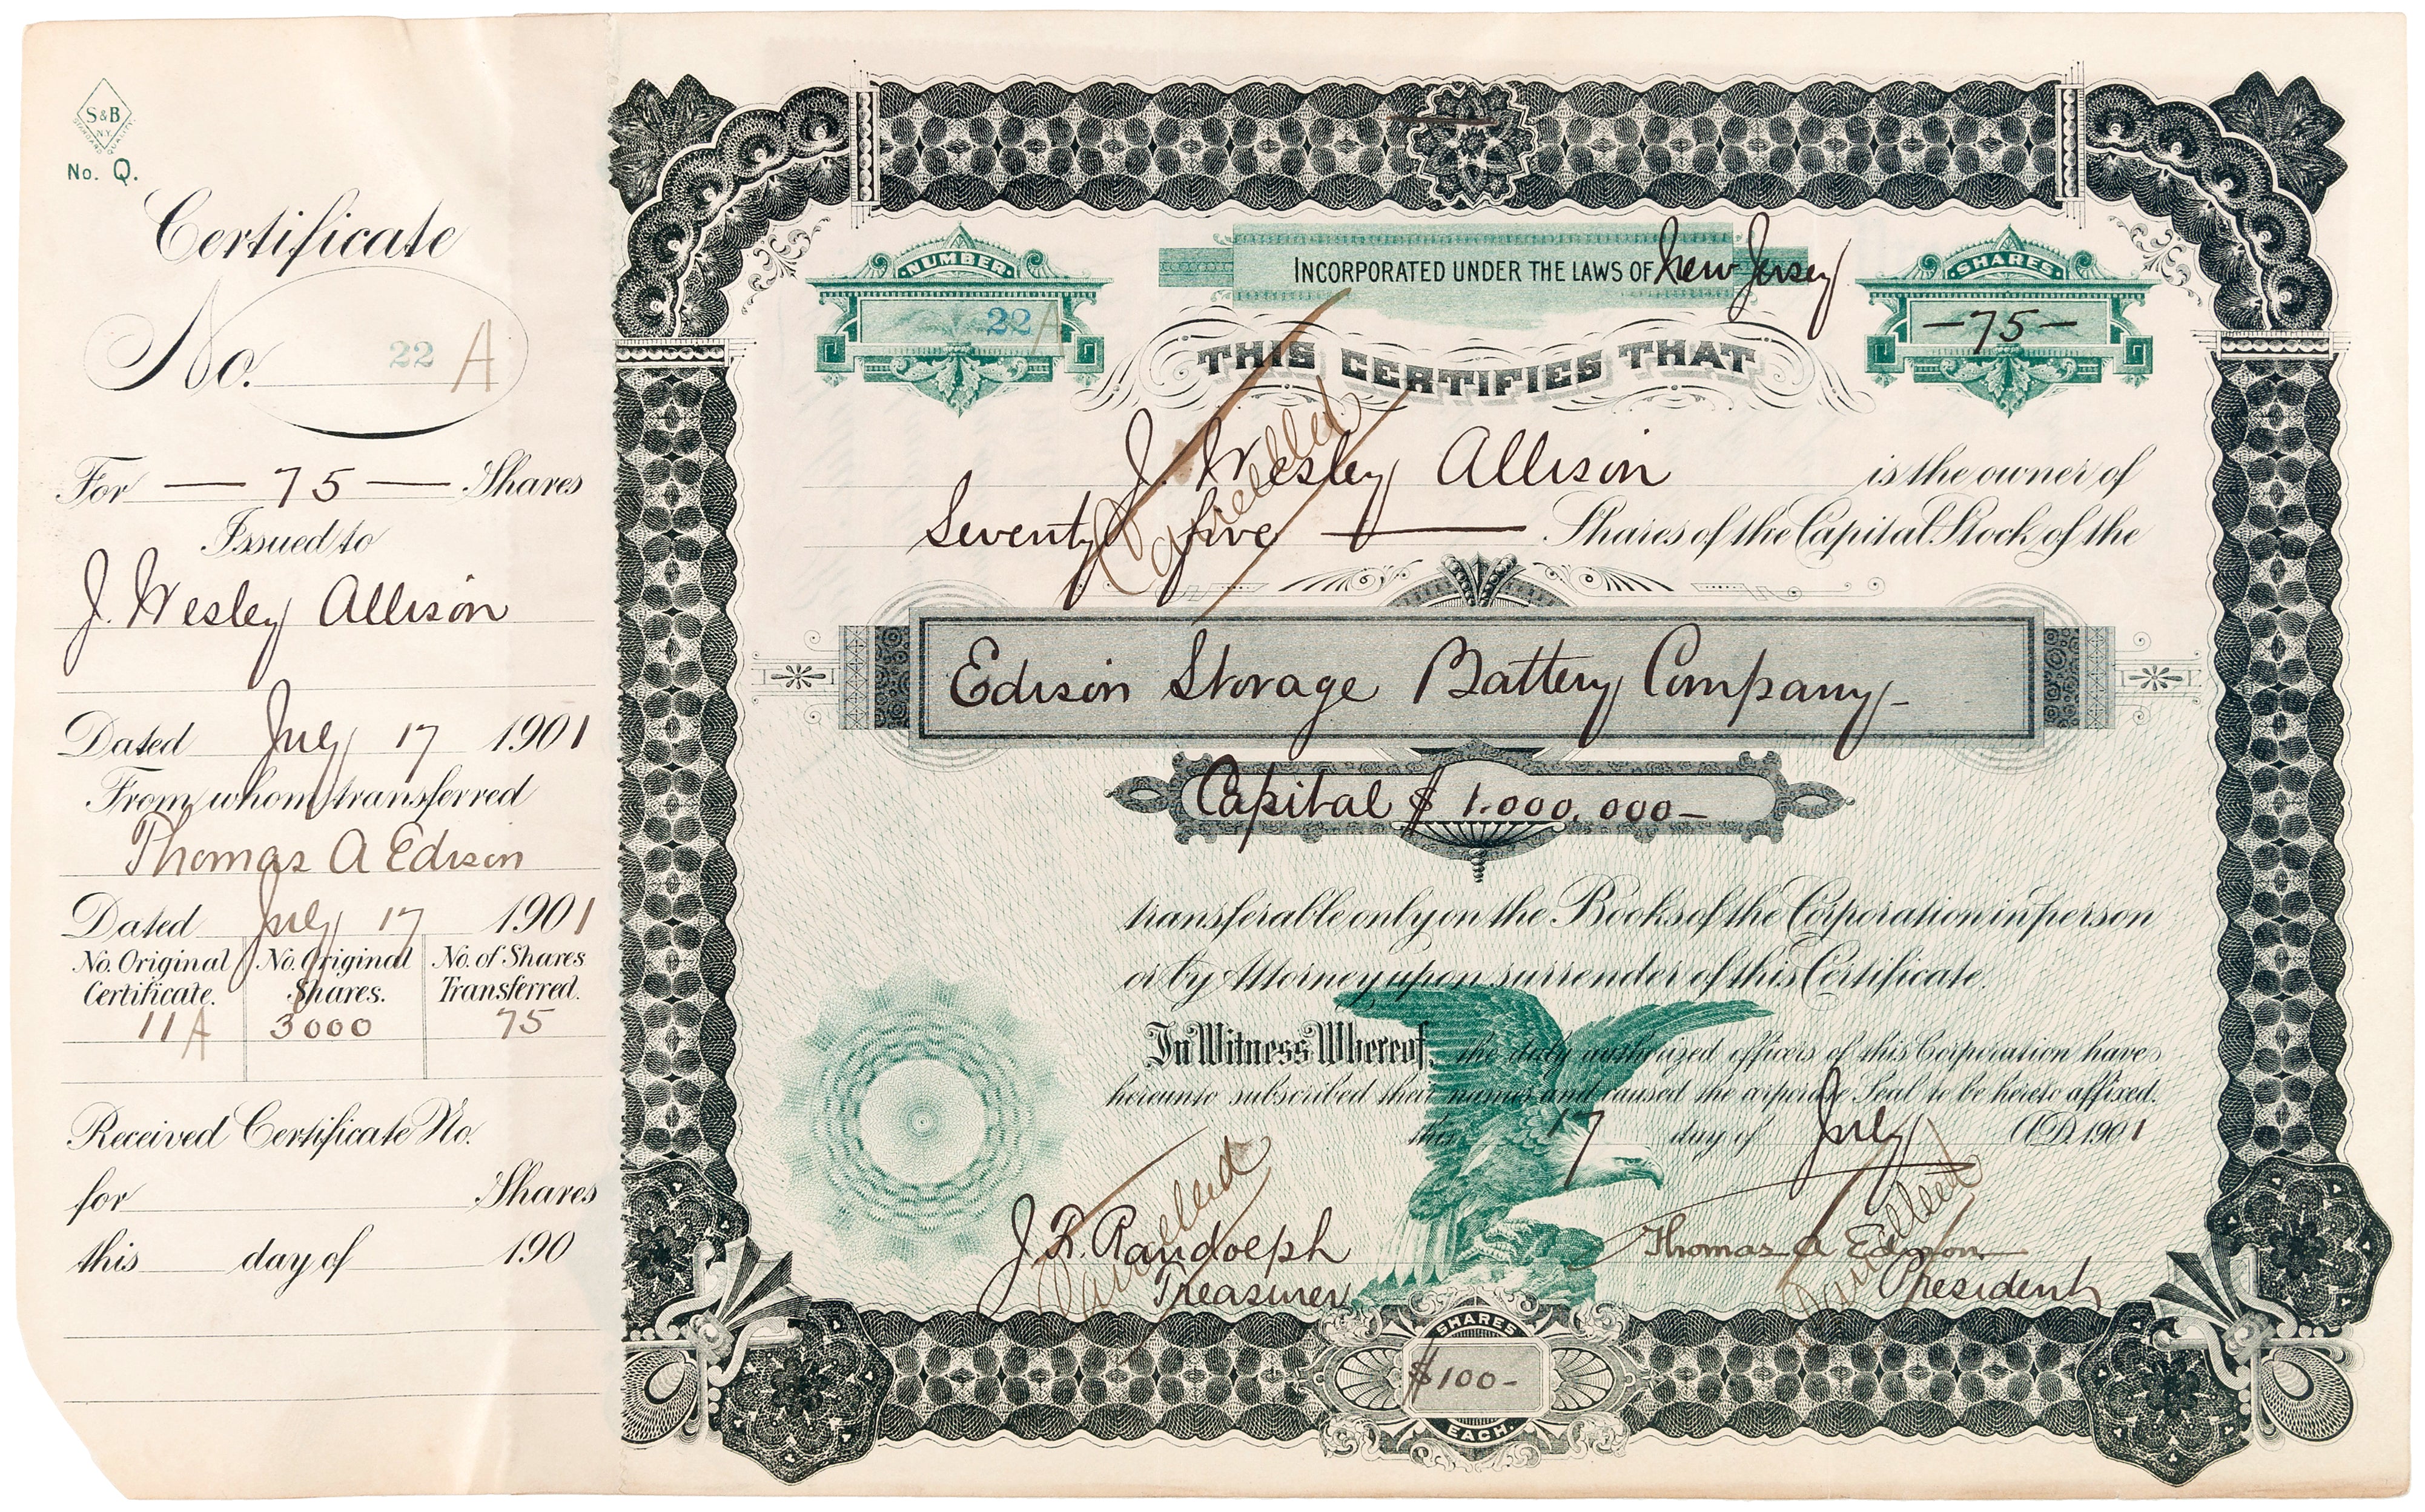 S&B
N.Y.
STANDARD QUALITY
No. Q.
Certificate
No. 22 A
For — 75 — Shares
Issued to
J. Wesley Allison
Dated July 17 1901
From whom transferred
Thomas A Edison
Dated July 17 1901
No. Original Certificate. No. Original Shares. No. of Shares Transferred.
11A 3000 75
Received Certificate No.
for Shares
this day of 190
NUMBER
22 A
INCORPORATED UNDER THE LAWS OF New Jersey
SHARES
—75—
THIS CERTIFIES THAT
J. Wesley Allison is the owner of
Cancelled
Seventy five — Shares of the Capital Stock of the
Edison Storage Battery Company-
Capital $ 1.000.000-
transferable only on the Books of the Corporation in person
or by Attorney upon surrender of this Certificate.
In Witness Whereof, the duly authorized officers of this Corporation have
hereunto subscribed their names and caused the corporate Seal to be hereto affixed.
this 17 day of July A.D. 1901
Cancelled
Cancelled
J. F. Randolph Thomas A Edison
Treasurer President
SHARES
$100-
EACH.